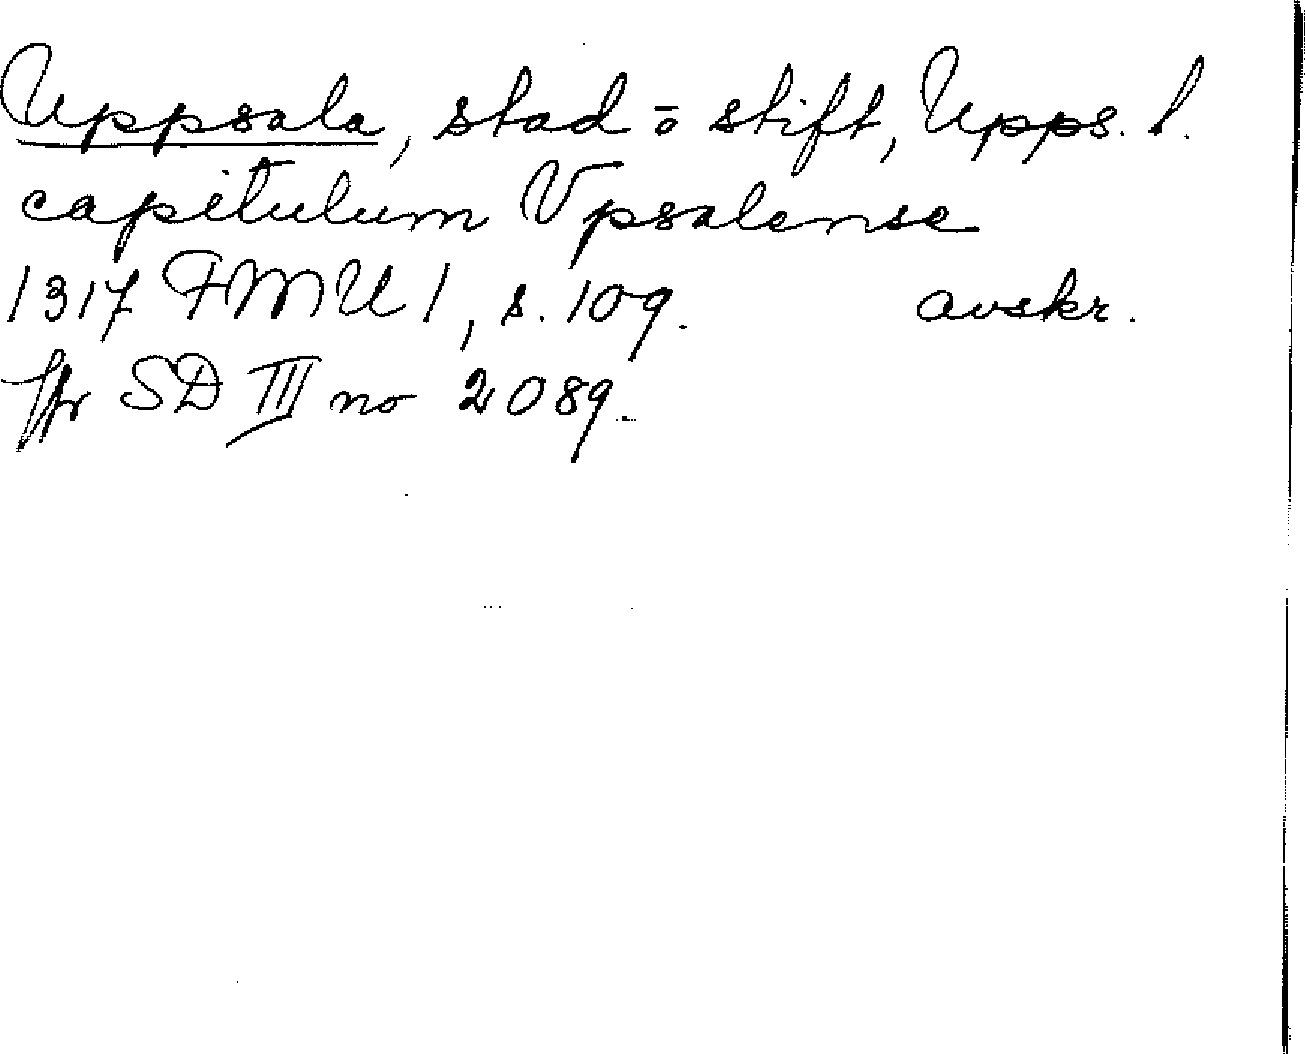 Uppsala, stad o stift, Upps. l.
capitulum Vpsalense
1317 FMU 1, s. 109. avskr.
Jfr SD III no 2089.